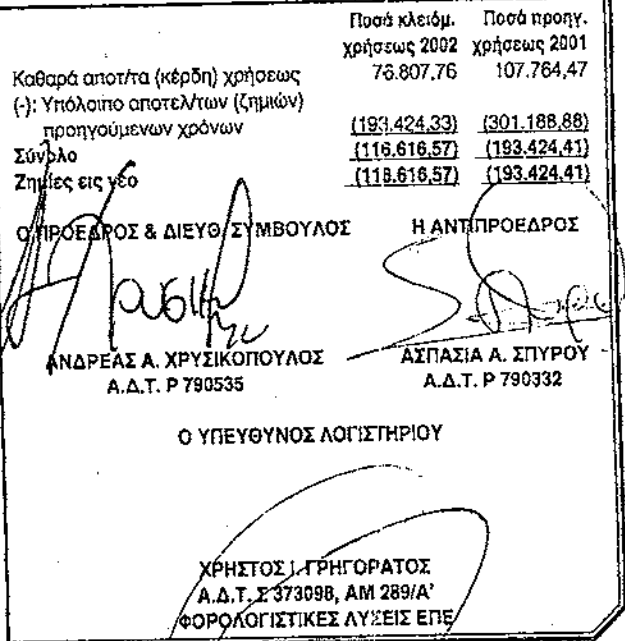 Ποσά κλειόμ. Ποσά προηγ.
χρήσεως 2002 χρήσεως 2001
Καθαρά αποτ/τα (κέρδη) χρήσεως 76.807,76 107.764,47
(-): Υπόλοιπο αποτελ/των (ζημιών)
προηγούμενων χρόνων (193.424,33) (301.188,88)
Σύνολο (116.616,57) (193.424,41)
Ζημίες εις νέο (116.616,57) (193.424,41)
Ο ΠΡΟΕΔΡΟΣ & ΔΙΕΥΘ. ΣΥΜΒΟΥΛΟΣ Η ΑΝΤΙΠΡΟΕΔΡΟΣ
ΑΝΔΡΕΑΣ Α. ΧΡΥΣΙΚΟΠΟΥΛΟΣ ΑΣΠΑΣΙΑ Α. ΣΠΥΡΟΥ
Α.Δ.Τ. Ρ 790535 Α.Δ.Τ. Ρ 790332
Ο ΥΠΕΥΘΥΝΟΣ ΛΟΓΙΣΤΗΡΙΟΥ
ΧΡΗΣΤΟΣ Ι. ΓΡΗΓΟΡΑΤΟΣ
Α.Δ.Τ. Σ 373098, ΑΜ 289/Α'
ΦΟΡΟΛΟΓΙΣΤΙΚΕΣ ΛΥΣΕΙΣ ΕΠΕ